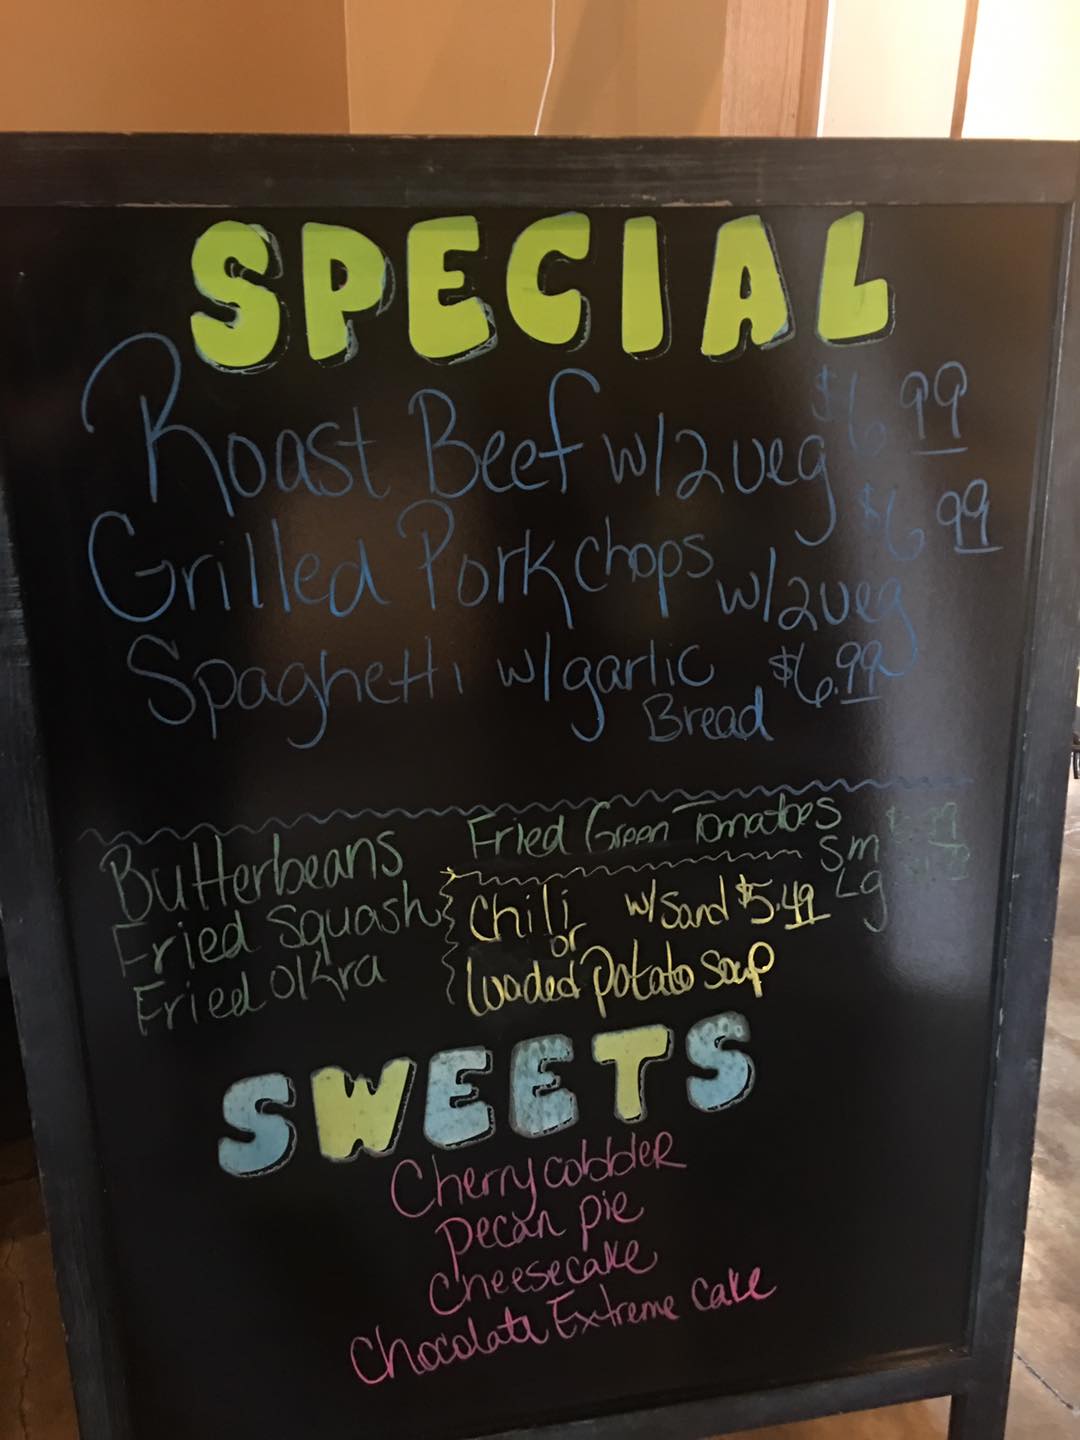 SPECIAL
Roast Beef w/2veg $6.99
Grilled Porkchops w/2veg $6.99
Spaghetti w/garlic Bread $6.99
Butterbeans
Fried Squash
Fried Okra
Fried Green Tomatoes
Sm
Lg
Chili w/Sand $5.49
or
Loaded Potato Soup
SWEETS
Cherry cobbler
Pecan pie
Cheesecake
Chocolate Extreme Cake